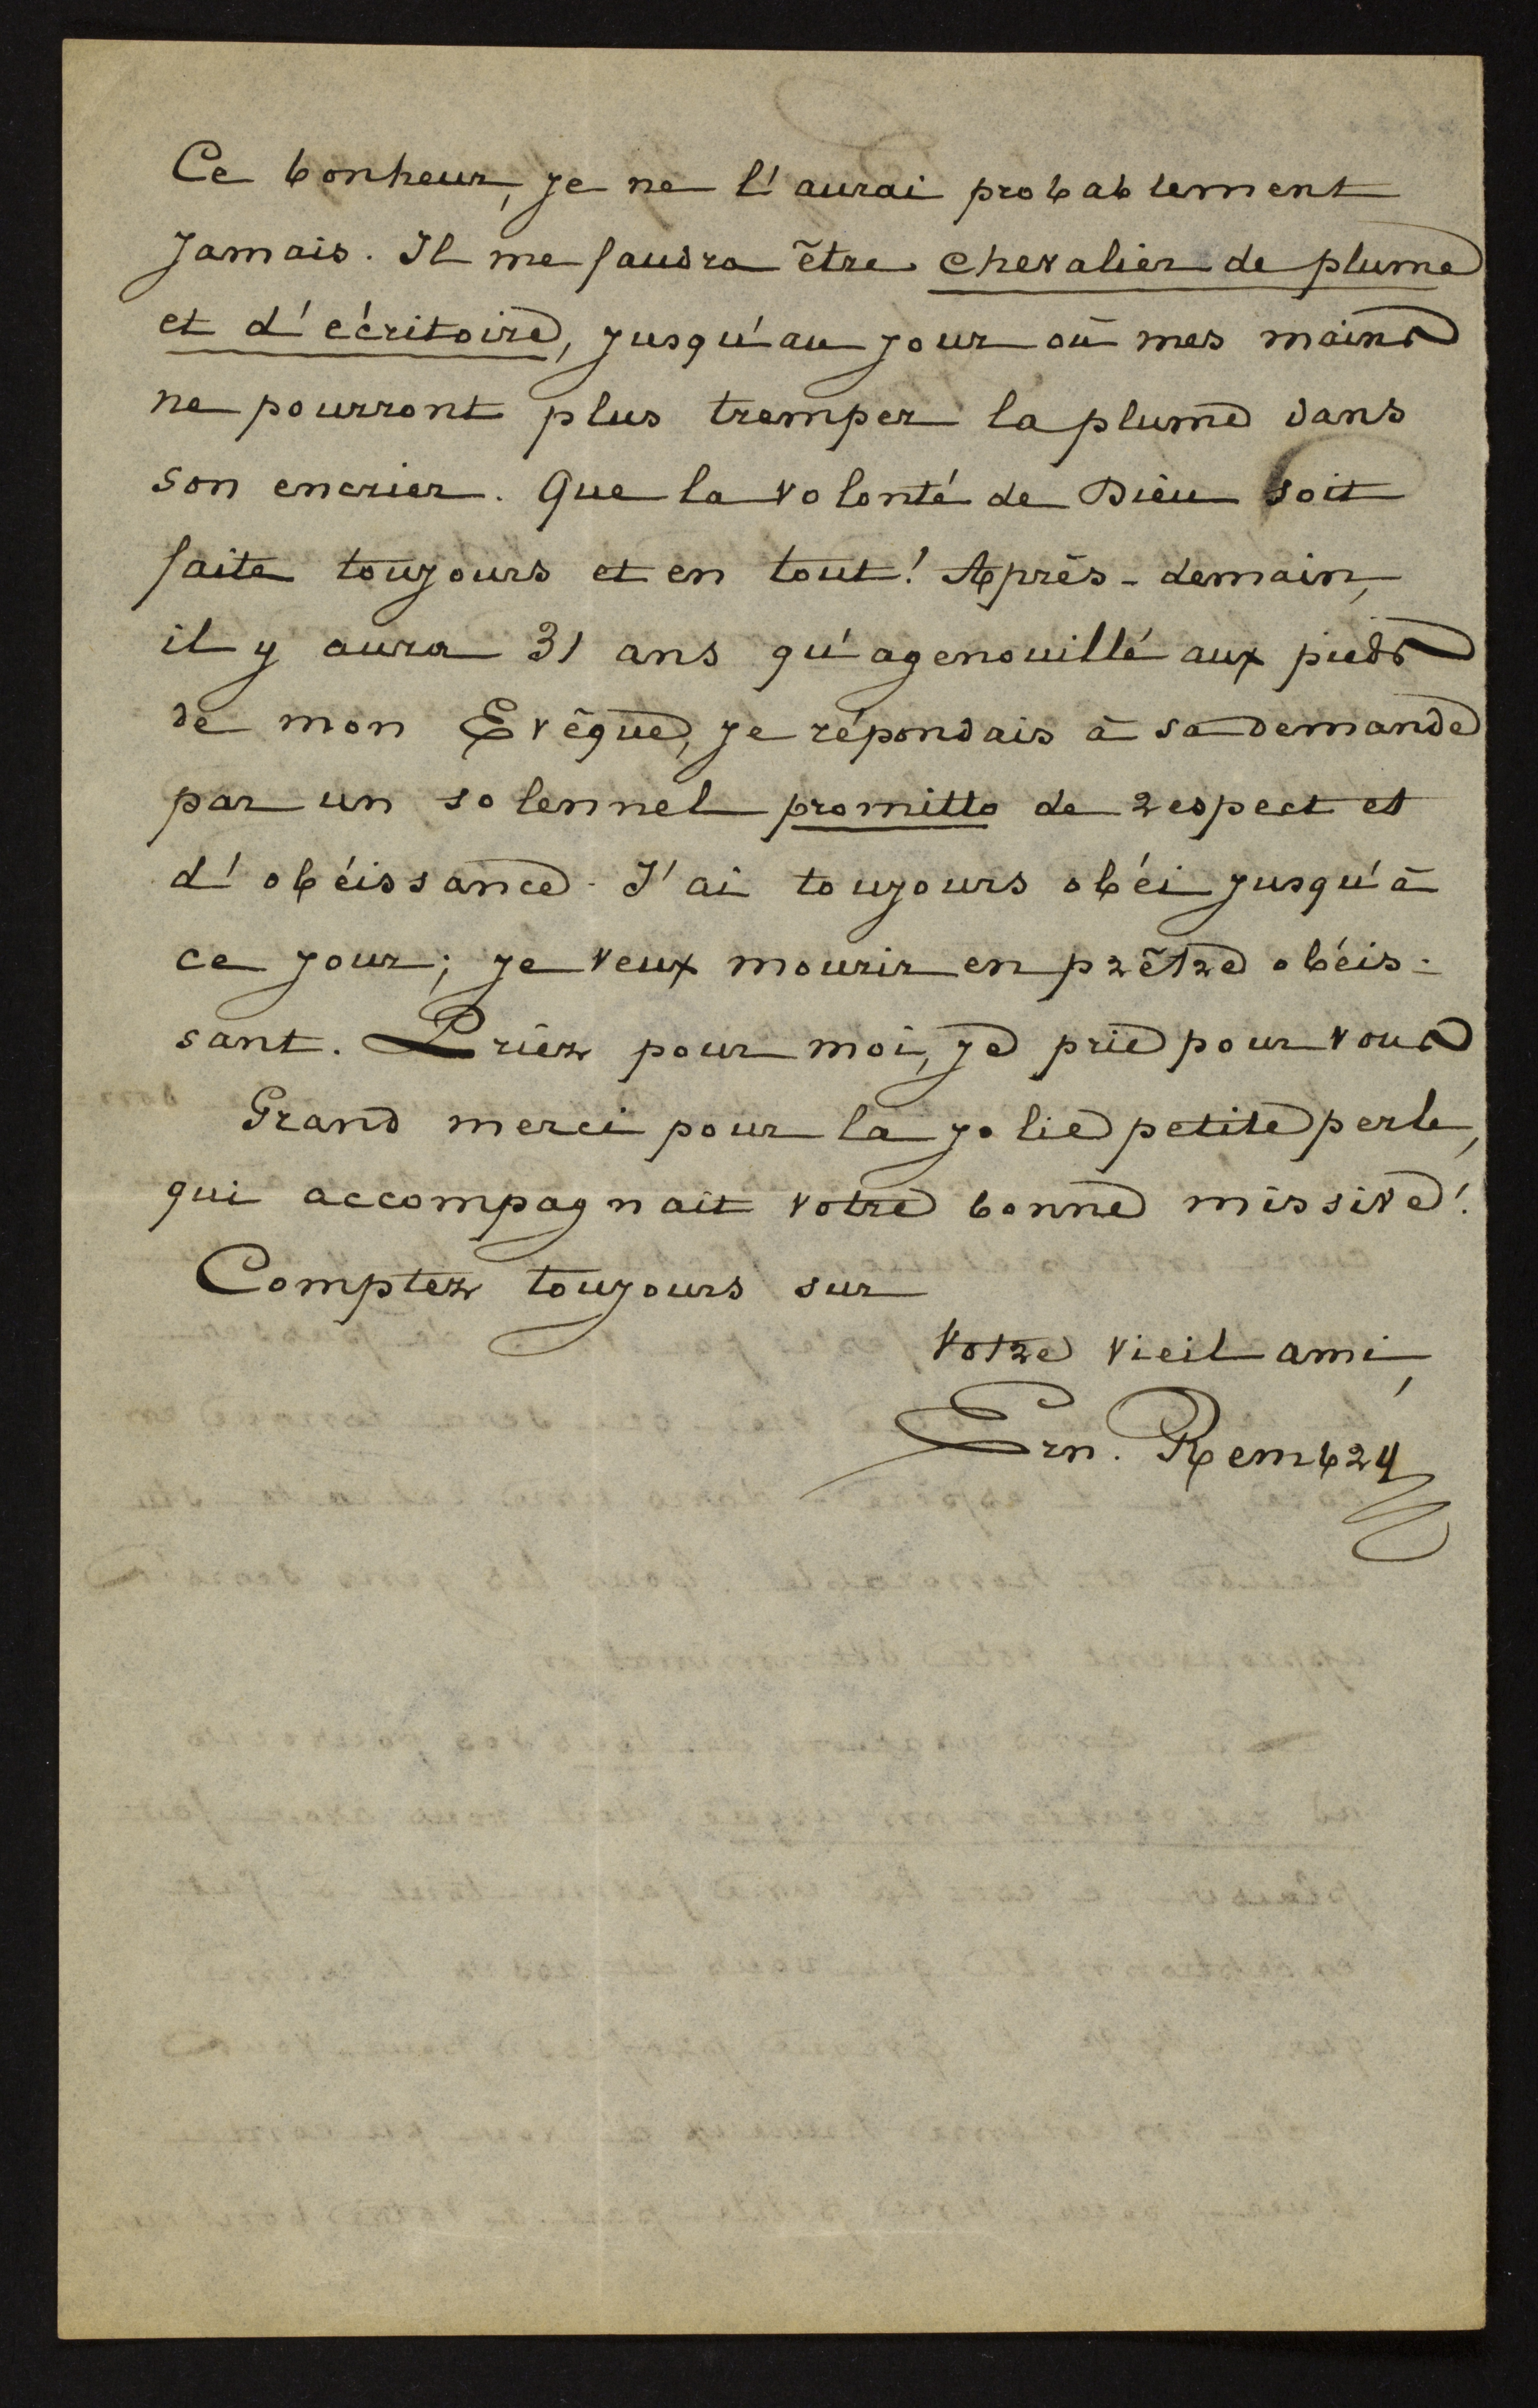 Ce bonheur, je ne l'aurai probablement
jamais. Il me faudra être chevalier de plume
et d'écritoire, jusqu'au jour où mes mains
ne pourront plus tremper la plume dans
son encrier. Que la volonté de Dieu soit
faite toujours et en tout! Après-demain,
il y aura 31 ans qu'agenouillé aux pieds
de mon Evêque, je répondais à sa demande
par un solennel promitto de respect et
d'obéissance. J'ai toujours obéi jusqu'à
ce jour; je veux mourir en prêtre obéis-
sant. Priez pour moi, je prie pour vous
Grand merci pour la jolie petite perle,
qui accompagnait votre bonne missive!
Comptez toujours sur
Votre vieil ami,
Ern. Rembry